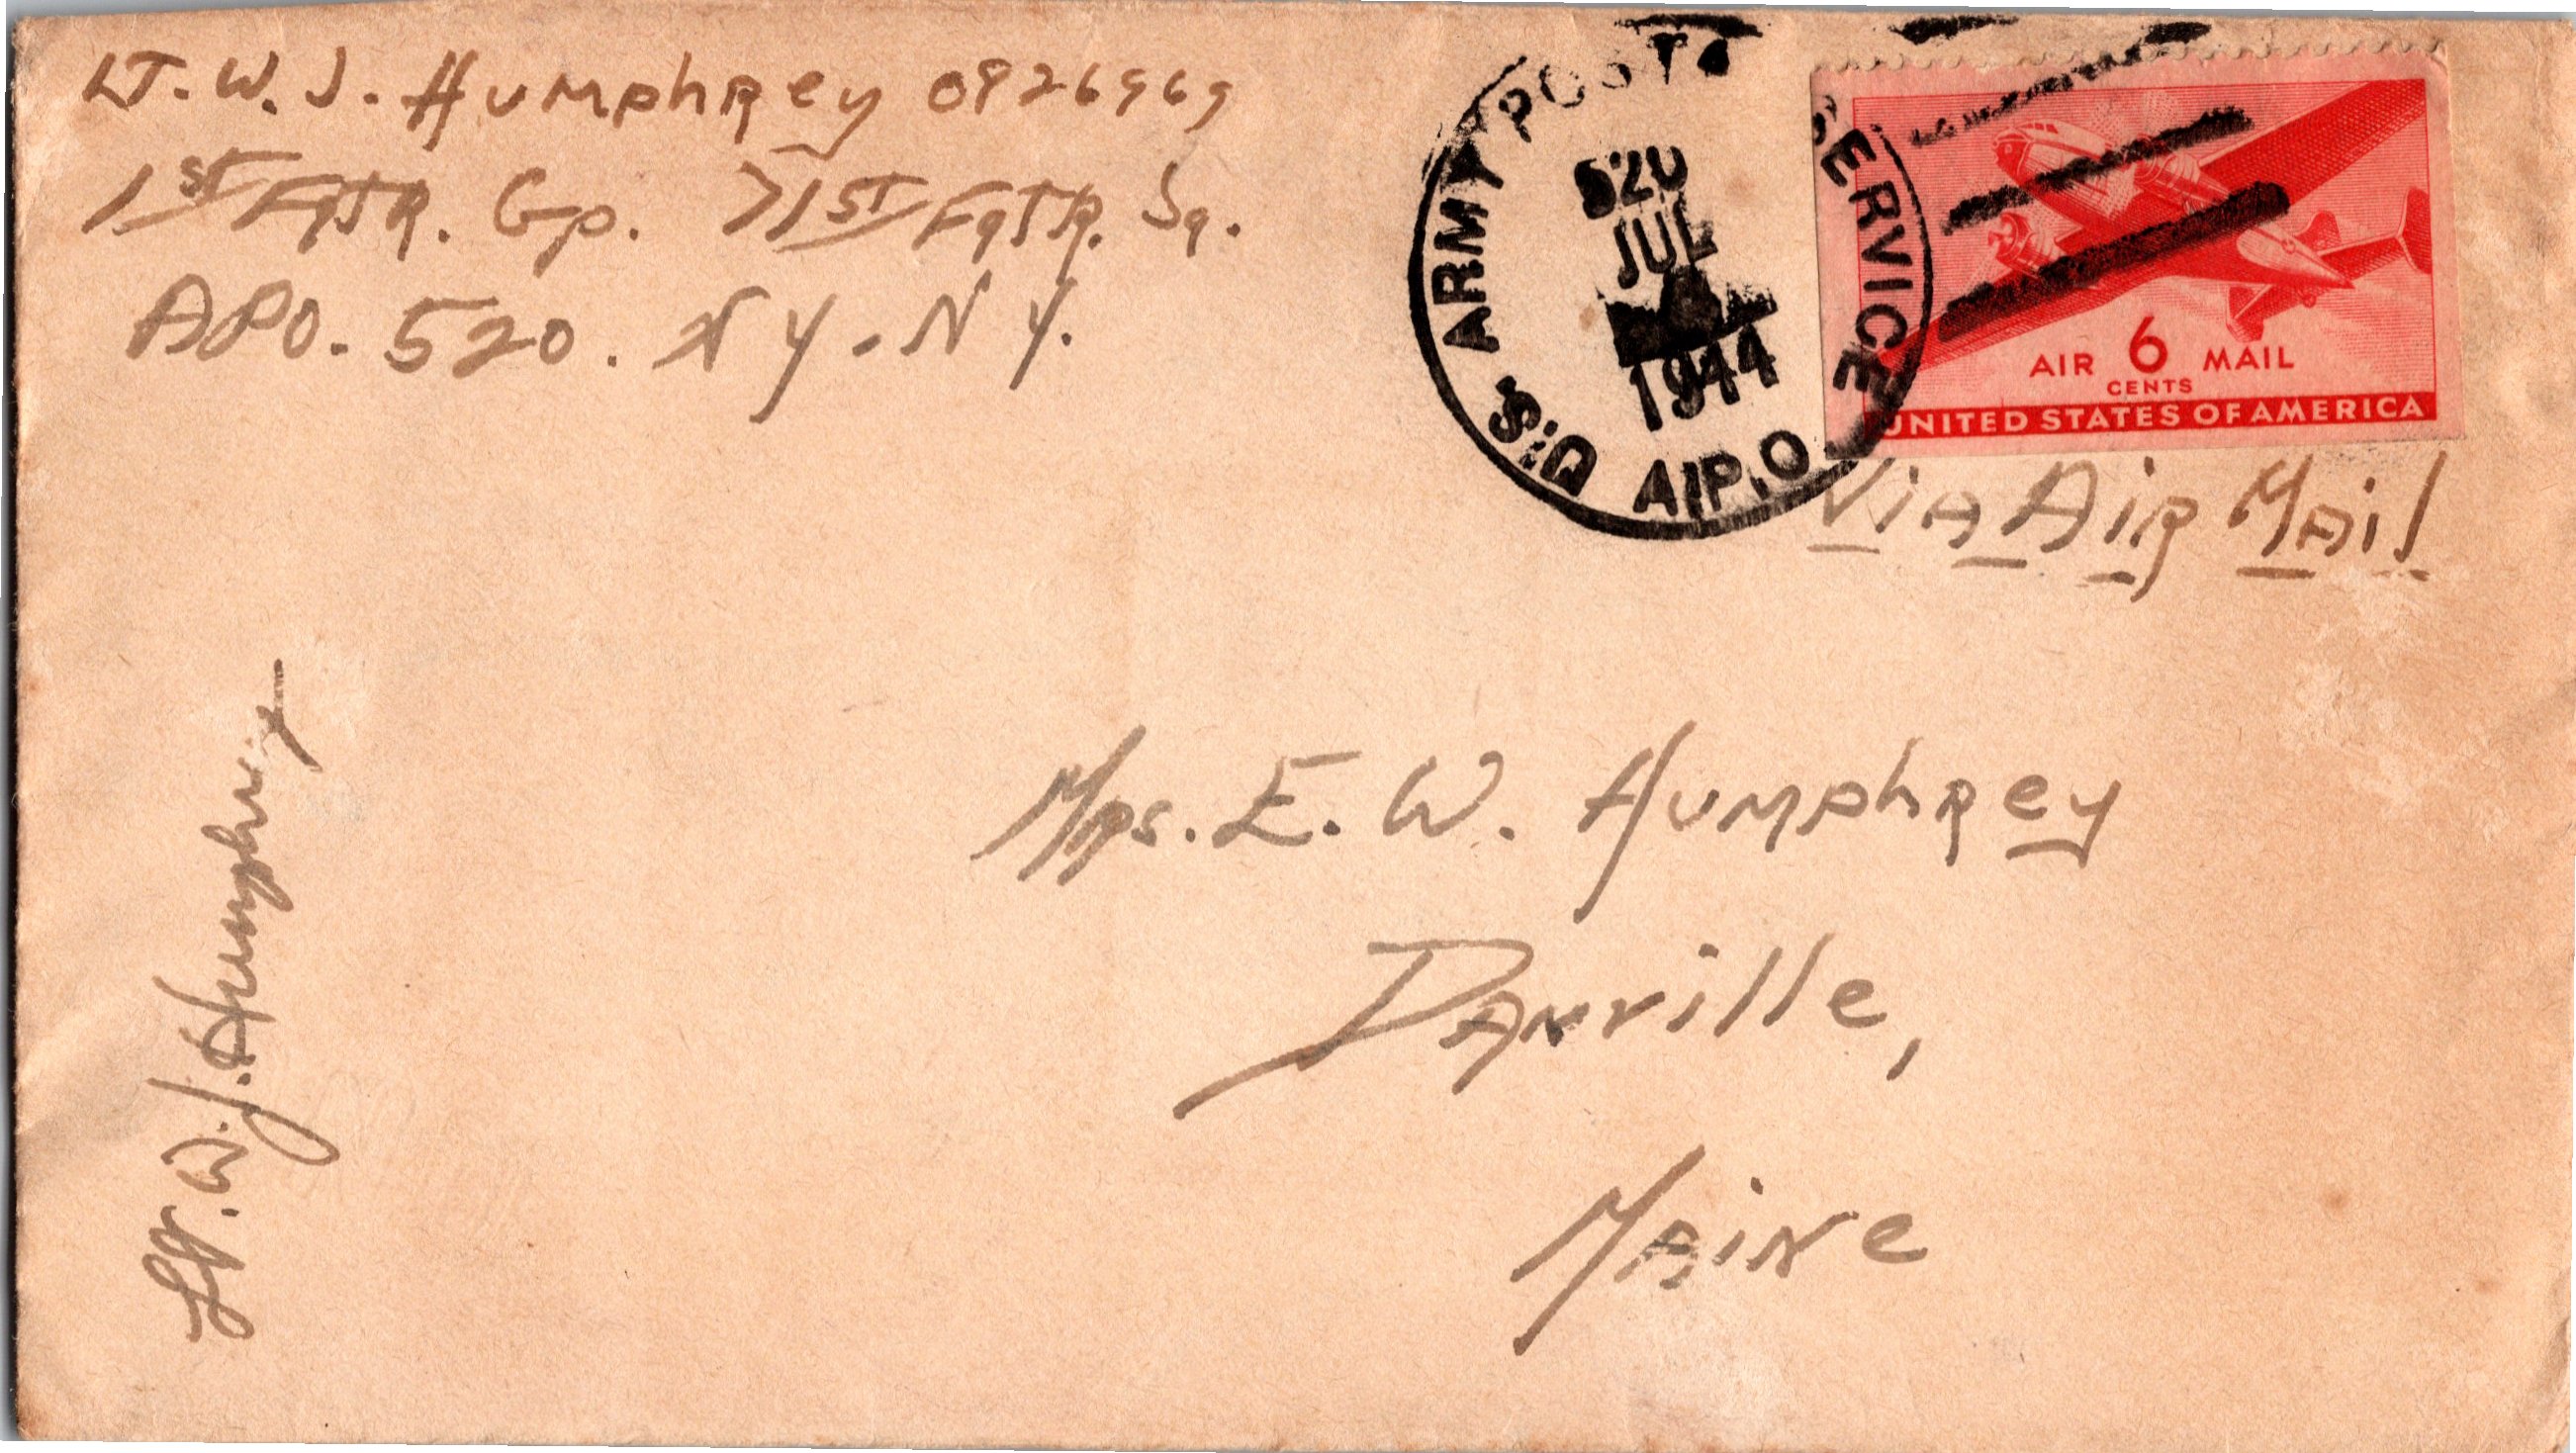 LT. W. J. Humphrey 0926969
1ST FGTR. Gp. 71ST FGTR. Sq.
APO. 520. NY. NY.
U.S. ARMY POSTAL SERVICE
520
JUL
1944
A.P.O.
AIR 6 MAIL
CENTS
UNITED STATES OF AMERICA
Via Air Mail
Mrs. E. W. Humphrey
Danville,
Maine
Lt. W. J. Humphrey